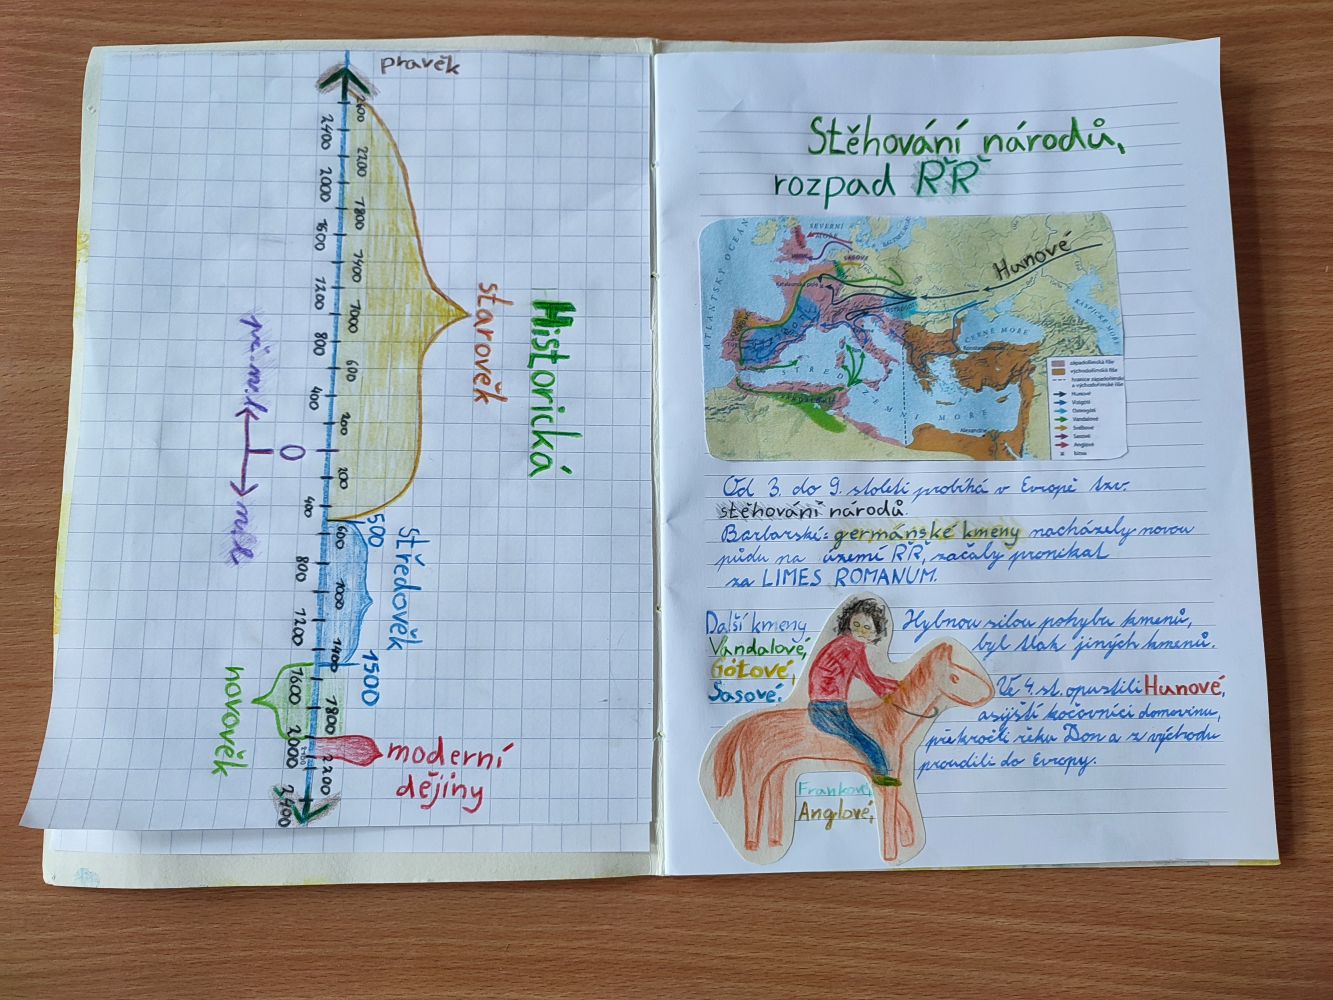 pravěk
2600
2400
2200
2000
1800
1600
1400
1200
1000
800
600
400
200
0
200
400
500
600
800
1000
1200
1400
1500
1600
1800
2000
2200
2400
starověk
Historická
př.n.l.
n.l.
středověk
novověk
moderní
dějiny
Stěhování národů,
rozpad ŘŘ
ATLANTSKÝ OCEÁN
SEVERNÍ
MOŘE
SASOVÉ
Hunové
Katalaunská pole
ČERNÉ MOŘE
KASPICKÉ MOŘE
STŘEDOZEMNÍ MOŘE
Alexandrie
západořímská říše
východořímská říše
hranice západořímské
a východořímské říše
Hunové
Vizigóti
Ostrogóti
Vandalové
Svébové
Sasové
Anglové
bitva
Od 3. do 9. století probíhá v Evropě tzv.
stěhování národů.
Barbarské: germánské kmeny nacházely novou
půdu na území ŘŘ, začaly pronikat
za LIMES ROMANUM.
Další kmeny
Vandalové,
Gótové,
Sasové.
Hybnou silou pohybu kmenů,
byl tlak jiných kmenů.
Ve 4. st. opustili Hunové,
asijští kočovníci domovinu,
překročili řeku Don a z východu
proudili do Evropy.
Frankové,
Anglové,